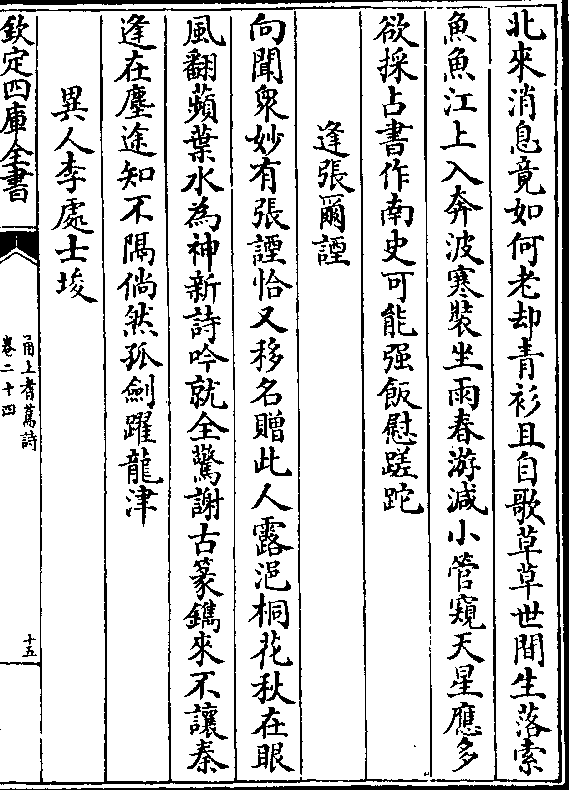 北來消息竟如何老却青衫且自歌草草世間生落索
魚魚江上入奔波寒裝坐雨春游減小管窺天星應多
欲採占書作南史可能强飯慰蹉跎
逢張爾諲
向聞衆妙有張諲恰又移名贈此人露浥桐花秋在眼
風翻蘋葉水為神新詩吟就全驚謝古篆鐫來不讓秦
逢在塵途知不隅倘然孤劍躍龍津
異人李處士埈
欽定四庫全書
甬上耆舊詩
卷二十四
十五